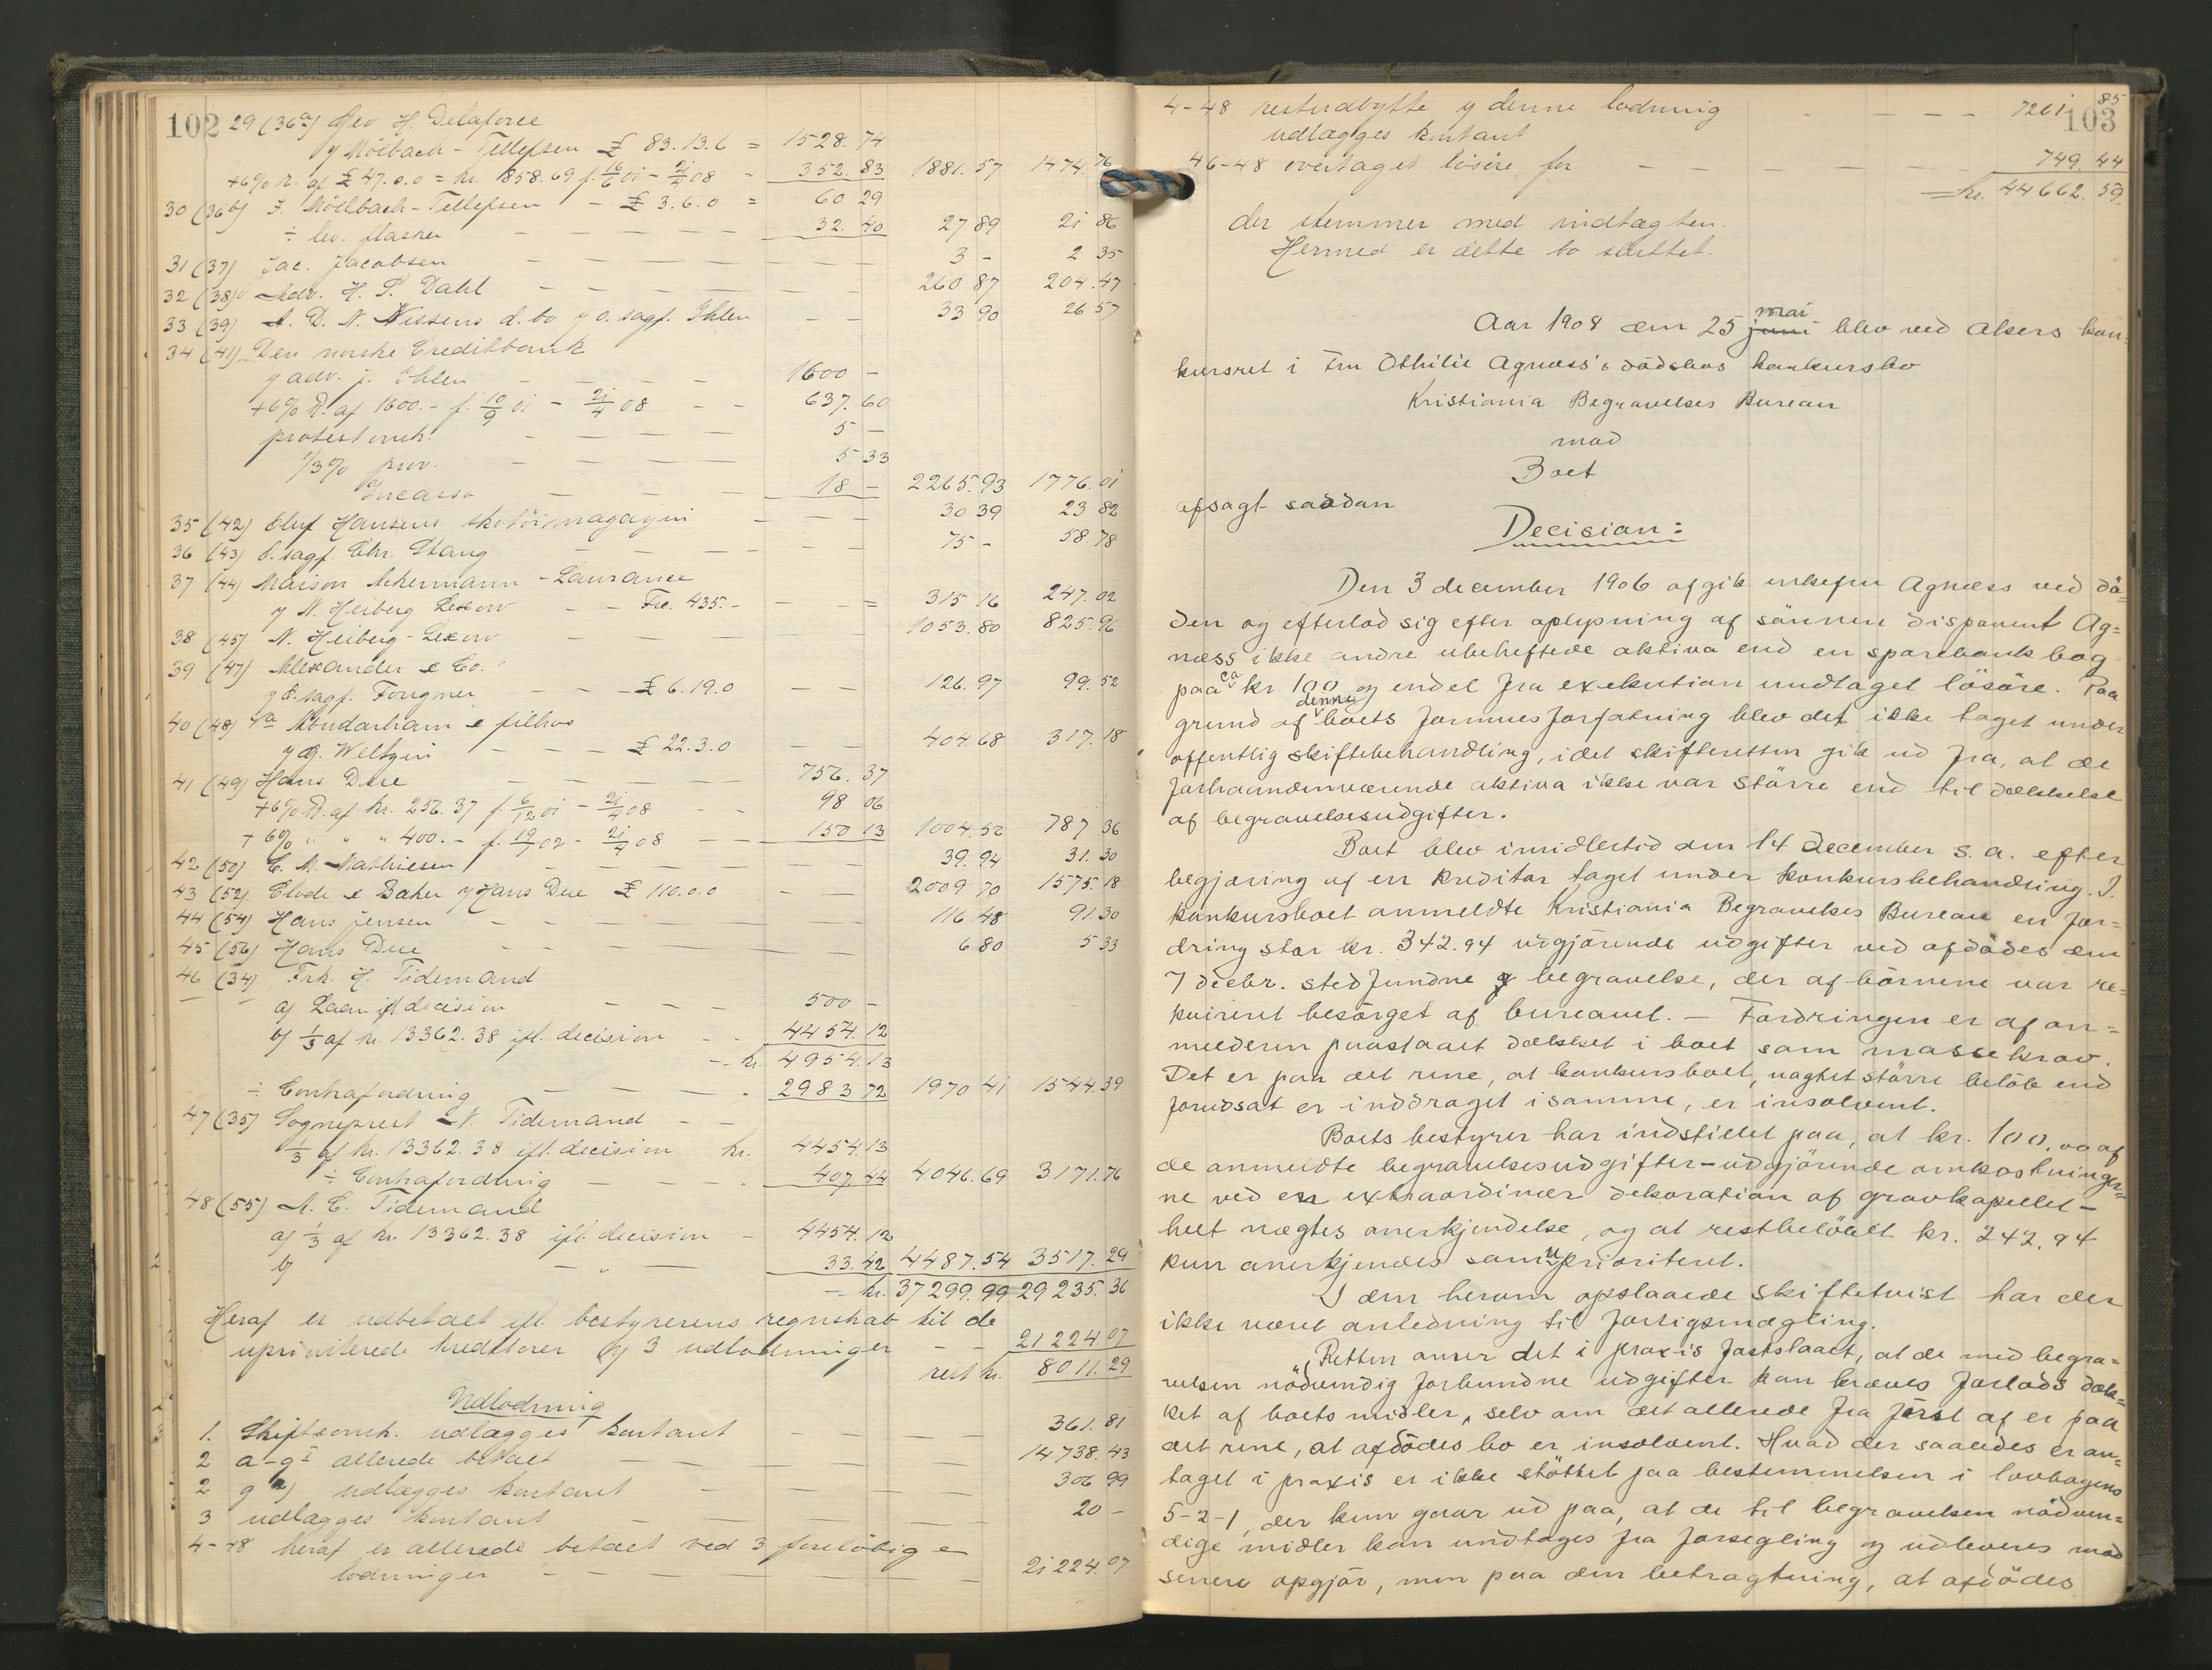 102
29 (36a) Geo H. Delaforce
v/ Mölbach-Tellefsen £ 83.13.6 = 1528.74
+6% R. af £ 47.0.0 = kr. 858.69 f. 6/6 01 - 21/4 08 - 352.83 1881.57 1474.76
30 (36b) J. Möllbach-Tellefsen - £ 3.6.0 = 60 29
÷ lev. flasker 32.40 27 89 21 86
31 (37) Jac. Jacobsen 3 - 2 35
32 (38) Adv. H. P. Dahl 260 87 204.47
33 (39) A. D. N. Nissens d. bo v/ o. sagf. Ihlen 33 90 26 57
34 (41) Den norske Creditbank
v/ adv. j. Ihlen 1600 -
+6% R. af 1600.- f. 10/9 01 - 21/4 08 637.60
protestomk. 5 -
1/3% prov. 5 33
Incasso 18 - 2265.93 1776.01
35 (42) Oluf Hansens skotöimagazin 30 39 23 82
36 (43) O. sagf. Chr. Stang 75 - 58.78
37 (44) Maison Ackermann-Laurance
v/ N. Heiberg Lexow - Frc. 435.- = 315 16 247.02
38 (45) N. Heiberg-Lexow 1053.80 825.96
39 (47) Alexander & Co.
v/ O. sagf. Fougner - £ 6.19.0 126.97 99.52
40 (48) Va Abudarham & filhos
v/ G. Weltzin £ 22.3.0 404.68 317.18
41 (49) Hans Due 756.37
+6% R. af kr. 256.37 f. 6/12 01 - 21/4 08 98 06
+ 6% " " " 400.- f. 19/1 02 - 21/4 08 150 13 1004.52 787 36
42 (50) C. M. Mathiesen 39.94 31.30
43 (52) Clode & Baker v/ Hans Due £ 110.0.0 2009 70 1575.18
44 (54) Hans Jensen 116 48 91 30
45 (56) Hans Due 6 80 5 33
46 (34) Frk. H. Tidemand
a) Laan ifl decision 500 -
b) 1/3 af kr. 13362.38 ifl. decision 4454.12
- kr. 4954.13
÷ Contrafordring 2983 72 1970 41 1544.39
47 (35) Sogneprest N. Tidemand
1/3 af kr. 13362.38 ifl. decision kr. 4454.13
÷ Contrafordring 407.44 4046.69 3171.76
48 (55) A. C. Tidemand
a) 1/3 af kr. 13362.38 ifl. decision - 4454.12
b) - " - 33.42 4487.54 3517.29
- kr. 37299.99 29235.36
Heraf er udbetalt ifl. bestyrerens regnskab til de
upriviterede kreditorer v/ 3 udlodninger 21224.07
rest kr. 8011.29
Udlodning
1. Skifteomk. udlægges kontant 361.81
2 a-g1 allerede betalt 14738.43
2 g 2) udlægges kontant 306 99
3 udlægges kontant 20 -
4-48 heraf er allerede betalt ved 3 foreløbige
lodninger 21224.07
103
4-48 restudbytte v/ denne lodning 7261.85
udlægges kontant
46-48 overtaget lösöre for 749.44
= kr. 44662.59
der stemmer med indtægten.
Hermed er dette bo sluttet.
Aar 1908 den 25 juni mai blev ved Akers kon-
kursret i Fru Othilie Agnæss's dödsbos konkursbo
Kristiania Begravelses Bureau
mod
Boet
afsagt saadan
Decision:
Den 3 december 1906 afgik enkefru Agnæss ved dö=
den og efterlod sig efter oplysning af sönnen disponent Ag=
næss ikke andre ubeheftede aktiva end en sparebankbog
paa ca kr 100 og endel fra exekution undtaget lösöre. Paa
grund af denne boets formuesforfatning blev det ikke taget under
offentlig skiftebehandling, idet skifteretten gik ud fra, at de
forhaandenværende aktiva ikke var större end til dækkelse
af begravelsesudgifter.
Boet blev imidlertid den 14 december s. a. efter
begjæring af en kreditor taget under konkursbehandling. I
konkursboet anmeldte Kristiania Begravelses Bureau en for=
dring stor kr. 342.94 udgjörende udgifter ved afdödes den
7 decbr. stedfundne begravelse, der af börnene var re=
kvireret besörget af bureauet. — Fordringen er af an=
melderen paastaaet dækket i boet som massekrav.
Det er paa det rene, at konkursboet, uagtet större belöb end
forudsat er inddraget i samme, er insolvent.
Boets bestyrer har indstillet paa, at kr. 100.00 af
de anmeldte begravelsesudgifter - udgjörende omkostninger=
ne ved en extraordinær dekoration af gravkapellet -
helt nægtes anerkjendelse, og at restbelöbet kr. 242.94
kun anerkjendes som uprioriteret.
I den herom opstaaede skiftetvist har der
ikke været anledning til forligsmægling.
"Retten anser det i praxis fastslaaet, at de med begra=
velsen nödvendig forbundne udgifter kan kræves forlods dæk=
ket af boets midler, selv om det allerede fra först af er paa
det rene, at afdödes bo er insolvent. Hvad der saaledes er an=
taget i praxis er ikke stöttet paa bestemmelsen i lovbogens
5-2-1, der kun gaar ud paa, at de til begravelsen nödven=
dige midler kan undtages fra forsegling og udleveres mod
senere opgjör, men paa den betragtning, at afdödes